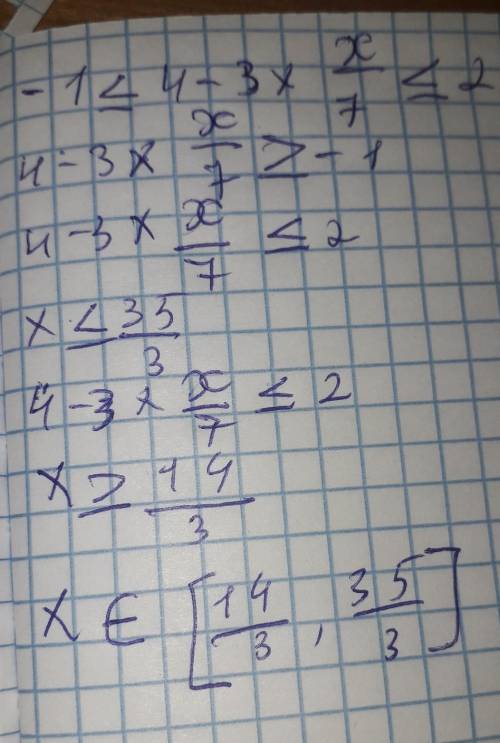 -1 ≤ 4 - 3 × x/7 ≤ 2
4 - 3 × x/7 ≥ -1
4 - 3 × x/7 ≤ 2
x ≤ 35/3
4 - 3 × x/7 ≤ 2
x ≥ 14/3
x ∈ [14/3, 35/3]